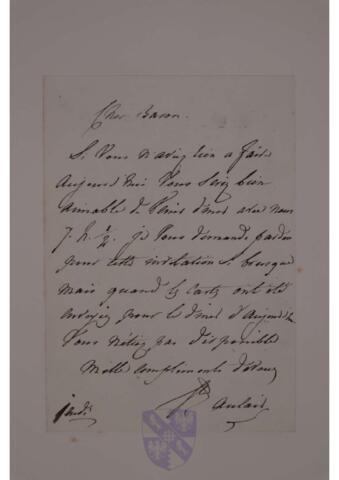 Cher Baron.
Si vous n'aviez rien a faire
aujourd'hui vous seriez bien
aimable de venir diner avec nous
7. h. 1/2. je vous demande pardon
pour cette invitation si brusque
mais quand les cartes ont été
envoyées pour le diner d'aujourd'hui
vous n'étiez pas disponible
mille compliments dévoués
jeudi